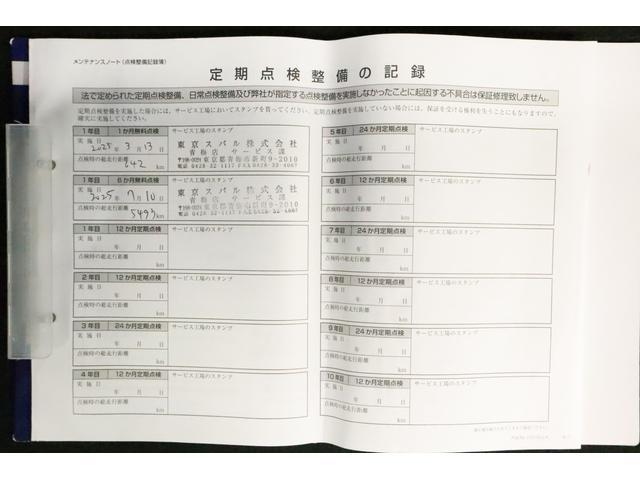 メンテナンスノート(点検整備記録簿)
定期点検整備の記録
法で定められた定期点検整備、日常点検整備及び弊社が指定する点検整備を実施しなかったことに起因する不具合は保証修理致しません。
定期点検整備を実施した場合には、サービス工場においてスタンプを貰ってください。定期点検整備を実施していない場合には、保証を受ける権利を失うことにもなりますので、
確実に実施してください。
1年目 1か月無料点検 サービス工場のスタンプ
実施日
2025年3月13日
点検時の総走行距離
642km
東京スバル株式会社
青梅店 サービス課
〒198-0024 東京都青梅市新町9-2010
電話 0428-32-1117 FAX 0428-32-4667
1年目 6か月無料点検 サービス工場のスタンプ
実施日
2025年9月10日
点検時の総走行距離
5493km
東京スバル株式会社
青梅店 サービス課
〒198-0024 東京都青梅市新町9-2010
電話 0428-32-1117 FAX 0428-32-4667
1年目 12か月定期点検 サービス工場のスタンプ
実施日
年 月 日
点検時の総走行距離
km
2年目 12か月定期点検 サービス工場のスタンプ
実施日
年 月 日
点検時の総走行距離
km
3年目 24か月定期点検 サービス工場のスタンプ
実施日
年 月 日
点検時の総走行距離
km
4年目 12か月定期点検 サービス工場のスタンプ
実施日
年 月 日
点検時の総走行距離
km
5年目 24か月定期点検 サービス工場のスタンプ
実施日
年 月 日
点検時の総走行距離
km
6年目 12か月定期点検 サービス工場のスタンプ
実施日
年 月 日
点検時の総走行距離
km
7年目 24か月定期点検 サービス工場のスタンプ
実施日
年 月 日
点検時の総走行距離
km
8年目 12か月定期点検 サービス工場のスタンプ
実施日
年 月 日
点検時の総走行距離
km
9年目 24か月定期点検 サービス工場のスタンプ
実施日
年 月 日
点検時の総走行距離
km
10年目 12か月定期点検 サービス工場のスタンプ
実施日
年 月 日
点検時の総走行距離
km